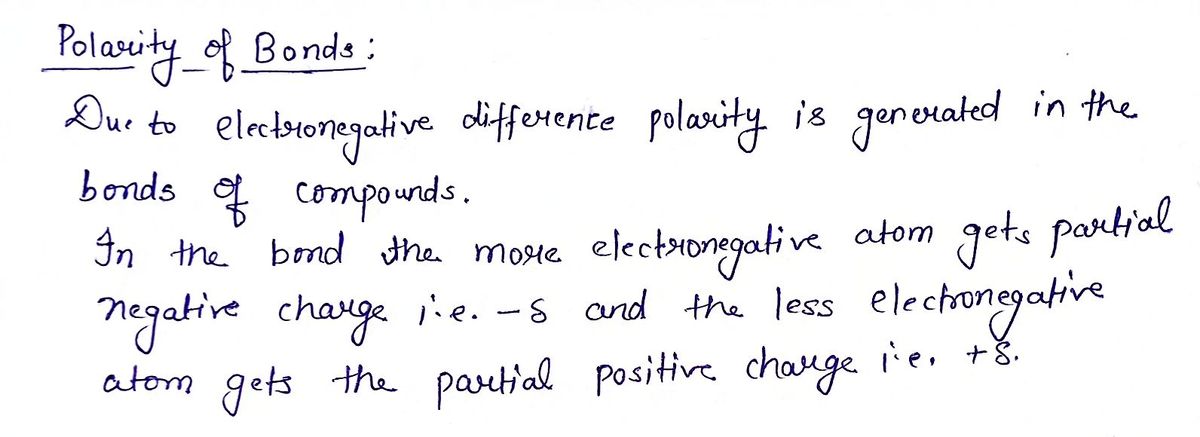 Polarity of Bonds:
Due to electronegative difference polarity is generated in the
bonds of compounds.
In the bond the more electronegative atom gets partial
negative charge i.e. -δ and the less electronegative
atom gets the partial positive charge i.e. +δ.